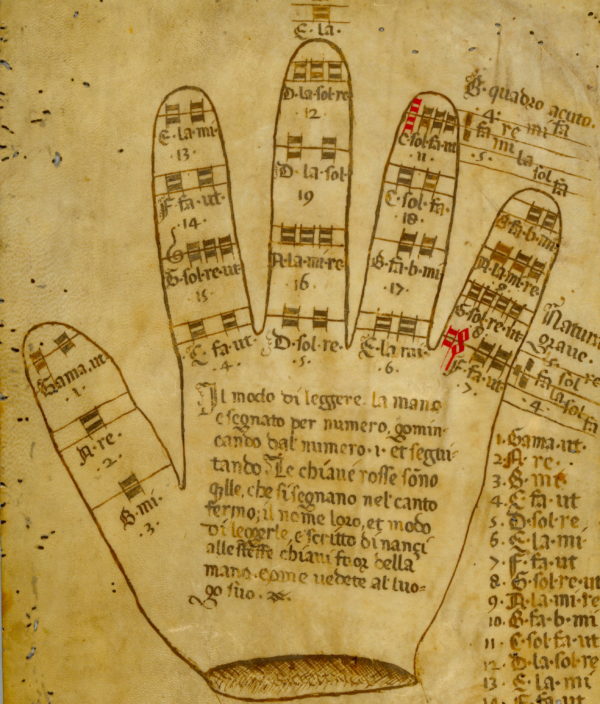 E·la·
D·la·sol·re
12
E·la·mi·
13·
C·sol·fa·ut
11
B·quadro acuto·
·4·
fa·re mi fa
·5·
mi la
sol fa
F·fa·ut·
·14·
D·la·sol·
19
C·sol·fa·
18·
B·fa·b·mi
G·sol·re·ut
15
A·la·mi·re·
16·
B·fa·b·mi
·17·
A·la·mi·re·
9
G·sol·re·ut
8
C·fa·ut·
·4·
D·sol·re·
·5·
E·la·mi·
·6·
F·fa·ut·
·7·
Natura
graue·
sol re
fa la sol
fa
·4·
Gama·ut·
·1·
A·re·
·2·
B·mi·
·3·
Il modo di leggere la mano
e segnato per numero, comin-
cando dal numero·1· et segui-
tando Le chiaue rosse sono
quelle, che si segnano nel canto
fermo; il nome loro, et modo
di leggerle, e scritto dinanci
alle stesse chiaui fuor della
mano·come uedete al luo-
go suo·
1·Gama·ut·
2·A·re·
3·B·mi·
4·C·fa·ut
5·D·sol·re
6·E·la·mi·
7·F·fa·ut
8·G·sol·re·ut
9·A·la·mi·re
10·B·fa·b·mi
11·C·sol·fa·ut
12·D·la·sol·re
13·E·la·mi
14·F·fa·ut